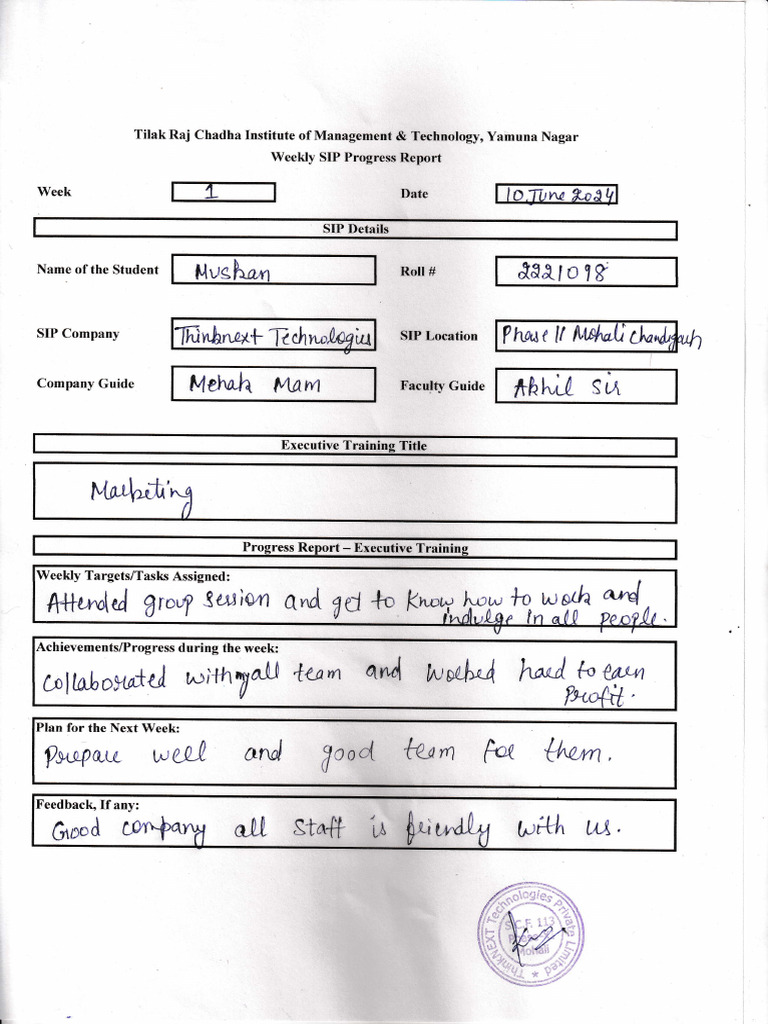 Tilak Raj Chadha Institute of Management & Technology, Yamuna Nagar
Weekly SIP Progress Report
Week 1 Date 10 June 2024
SIP Details
Name of the Student Muskan Roll # 2221098
SIP Company Thinknext Technologies SIP Location Phase II Mohali Chandigarh
Company Guide Mehak Mam Faculty Guide Akhil Sir
Executive Training Title
Marketing
Progress Report – Executive Training
Weekly Targets/Tasks Assigned:
Attended group session and get to know how to work and
indulge in all people.
Achievements/Progress during the week:
Collaborated with my all team and worked hard to earn
Profit.
Plan for the Next Week:
Prepare well and good team for them.
Feedback, If any:
Good company all staff is friendly with us.
ThinkNEXT Technologies Private Limited
S.C.F. 113
Mohali